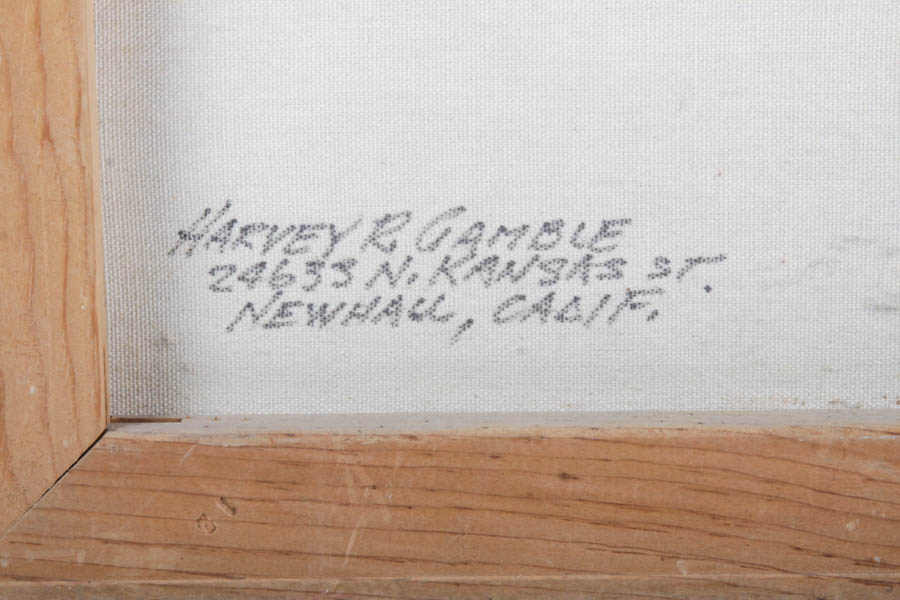 HARVEY R. GAMBLE
24633 N. KANSAS ST.
NEWHALL, CALIF.